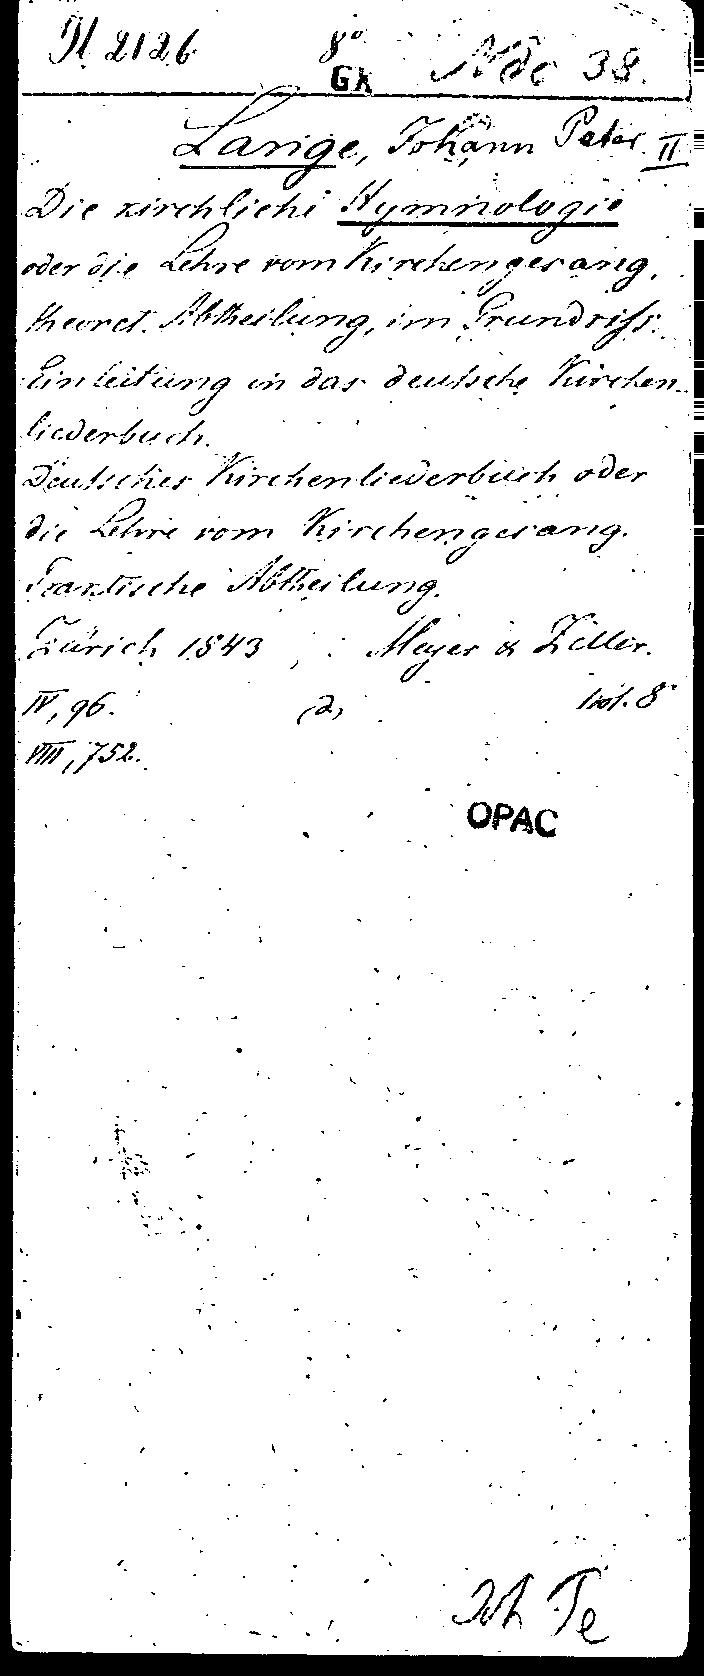 2126 8° Ndc 38.
GK
Lange, Johann Peter II
Die kirchliche Hymnologie
oder die Lehre vom Kirchengesang,
theoret. Abtheilung, im Grundriss.
Einleitung in das deutsche Kirchen-
liederbuch.
Deutsches Kirchenliederbuch oder
die Lehre vom Kirchengesang.
Practische Abtheilung.
Zürich 1843, Meyer & Zeller.
IV, 96. 8°
VIII, 752.
OPAC